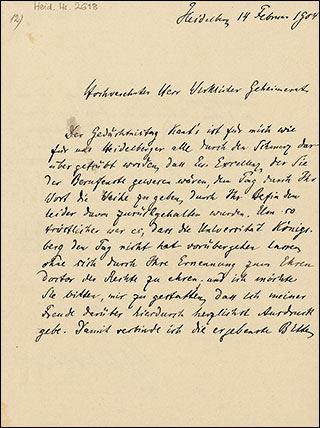 Heid. Hs. 2618
12)
Heidelberg 14 Februar 1904
Hochverehrter Herr Wirklicher Geheimerat
Der Gedächtnistag Kant's ist für mich wie
für uns Heidelberger alle durch den Schmerz dar-
über getrübt worden, daß Eu. Excellenz, der Sie
der Berufenste gewesen wären, den Tag durch Ihr
Wort die Weihe zu geben, durch Ihr Befinden
leider davon zurückgehalten wurden. Um so
tröstlicher war es, dass die Universität Königs-
berg den Tag nicht hat vorübergehen lassen
ohne sich durch Ihre Ernennung zum Ehren
Doctor der Rechte zu ehren. und ich möchte
Sie bitten, mir zu gestatten, daß ich meiner
Freude darüber hierdurch herzlichst Ausdruck
gebe. Damit verbinde ich die ergebenste Bitte,